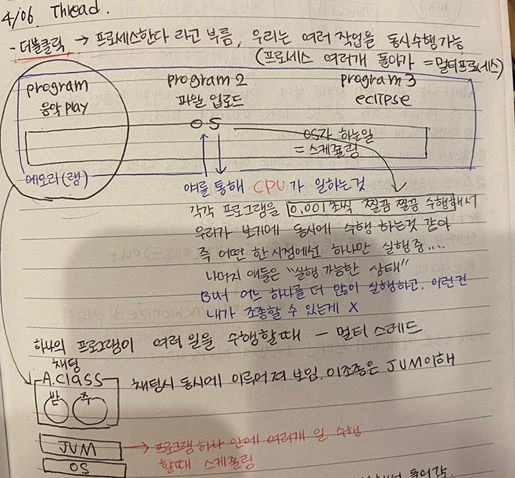 4/06. Thread.
- 더블클릭 → 프로세스한다 라고 부름, 우리는 여러 작업을 동시수행가능
(프로세스 여러개 돌아가 = 멀티프로세스)
program
음악 play
program 2
파일 업로드
OS
program 3
eclipse
OS가 하는일
= 스케쥴링
메모리(램)
얘를 통해 CPU가 일하는것
각각 프로그램을 0.001초씩 찔끔 찔끔 수행해서
우리가 보기에 동시에 수행하는것 같아
즉 어떤 한 시점에선 하나만 실행중....
나머지 애들은 "실행 가능한 상태"
But 어느 하나를 더 많이 실행하고, 이런건
내가 조종할 수 있는게 X
하나의 프로그램이 여러 일을 수행할때 - 멀티 스레드
채팅
A.class
받 주
채팅시 동시에 이루어져 보임. 이조종은 JVM이해
JVM → 프로그램 하나 안에 여러개 일 수행
할때 스케쥴링
OS